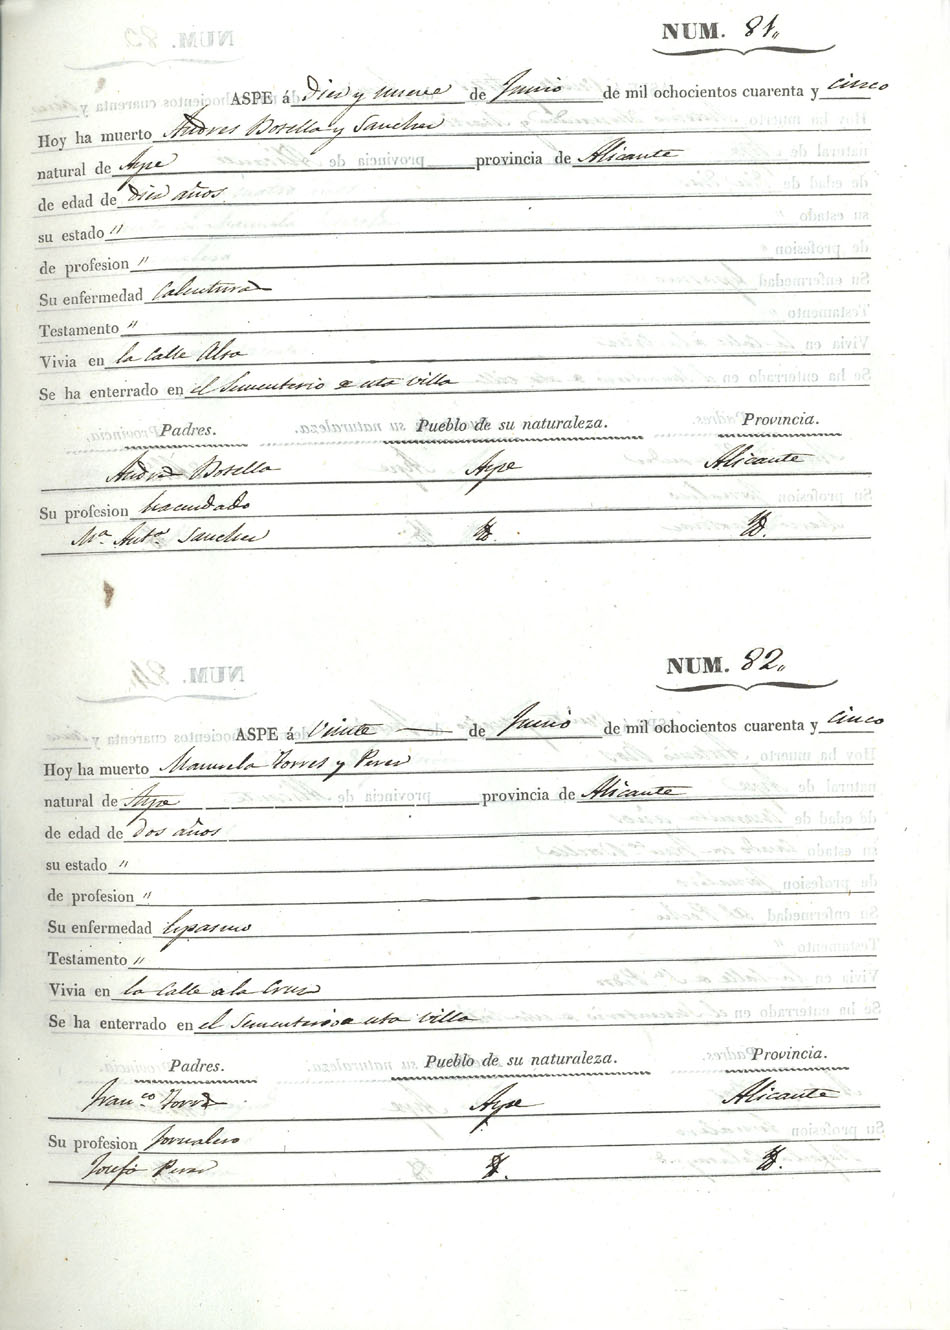 NUM. 81.
ASPE á Diez y nueve de Junio de mil ochocientos cuarenta y cinco
Hoy ha muerto Andres Botella y Sanchez
natural de Aspe provincia de Alicante
de edad de diez años
su estado "
de profesion "
Su enfermedad Calentura
Testamento "
Vivia en la Calle Alta
Se ha enterrado en el Sementerio de esta villa
Padres. Pueblo de su naturaleza. Provincia.
Andres Botella Aspe Alicante
Su profesion hacendado
Mª Antª Sanchez Yd. Yd.
NUM. 82.
ASPE á Veinte de Junio de mil ochocientos cuarenta y cinco
Hoy ha muerto Manuela Torres y Perez
natural de Aspe provincia de Alicante
de edad de dos años
su estado "
de profesion "
Su enfermedad Espasmo
Testamento "
Vivia en la Calle de la Cruz
Se ha enterrado en el Sementerio de esta villa
Padres. Pueblo de su naturaleza. Provincia.
Franco Torres Aspe Alicante
Su profesion Jornalero
Josefa Perez Yd. Yd.